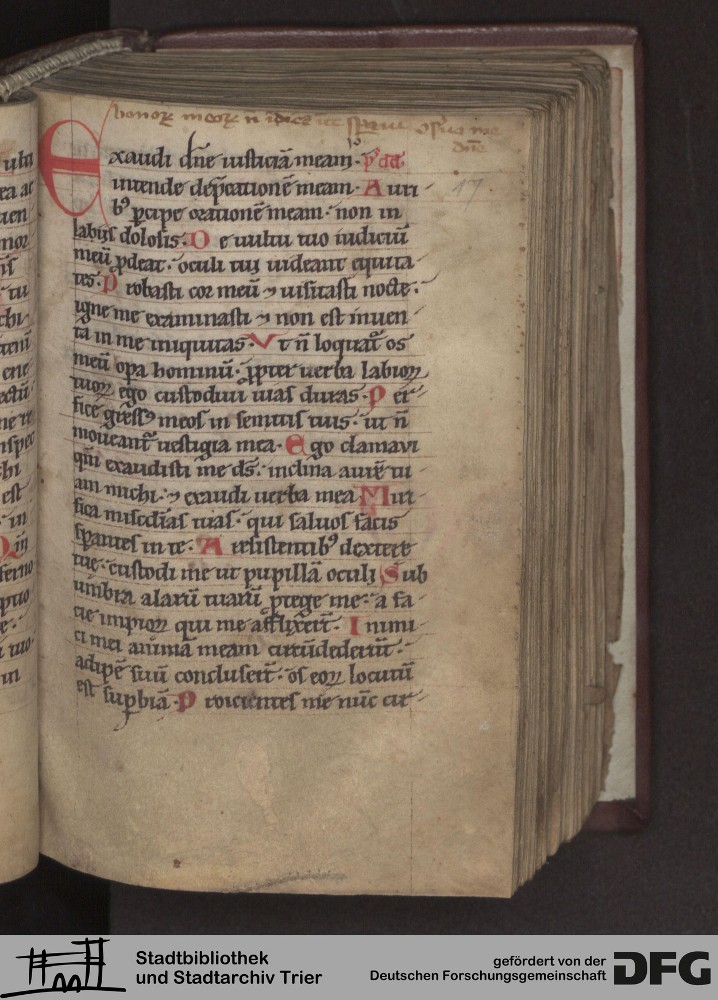 honoꝝ meoꝝ n
Exaudi dn̄e iusticiā meam· p̄s dd̄
intende dep̄cationē meam· Auri
bꝰ ꝑcipe orationē meam· non in
17.
labiis dolosis· De uultu tuo iudiciū
meū ꝓdeat· oculi tui uideant equita
tes· Probasti cor meū ⁊ uisitasti nocte·
igne me examinasti ⁊ non est inuen
ta in me iniquitas· Vt n̄ loquat᷑ os
meū opa hominū· ꝓpter uerba labioꝝ
tuoꝝ ego custodiui uias duras· Per
fice gressꝰ meos in semitis tuis· ut n̄
moueant᷑ uestigia mea· Ego clamaui
qm̄ exaudisti me ds̄· inclina aurē tu
am michi· ⁊ exaudi uerba mea Miri
fica misc̄dias tuas· qui saluos facis
sꝑantes in te· A resistentibꝰ dextere
tue· custodi me ut pupillā oculi Sub
umbra alarū tuarū ꝓtege me· a fa
cie impioꝝ qui me afflixert̄· Inimi
ci mei animā meam circūdedert̄·
adipē suū conclusert̄· os eoꝝ locutū
est suꝑbiā· Proicientes me nūc cir
Stadtbibliothek
und Stadtarchiv Trier
gefördert von der
Deutschen Forschungsgemeinschaft
DFG